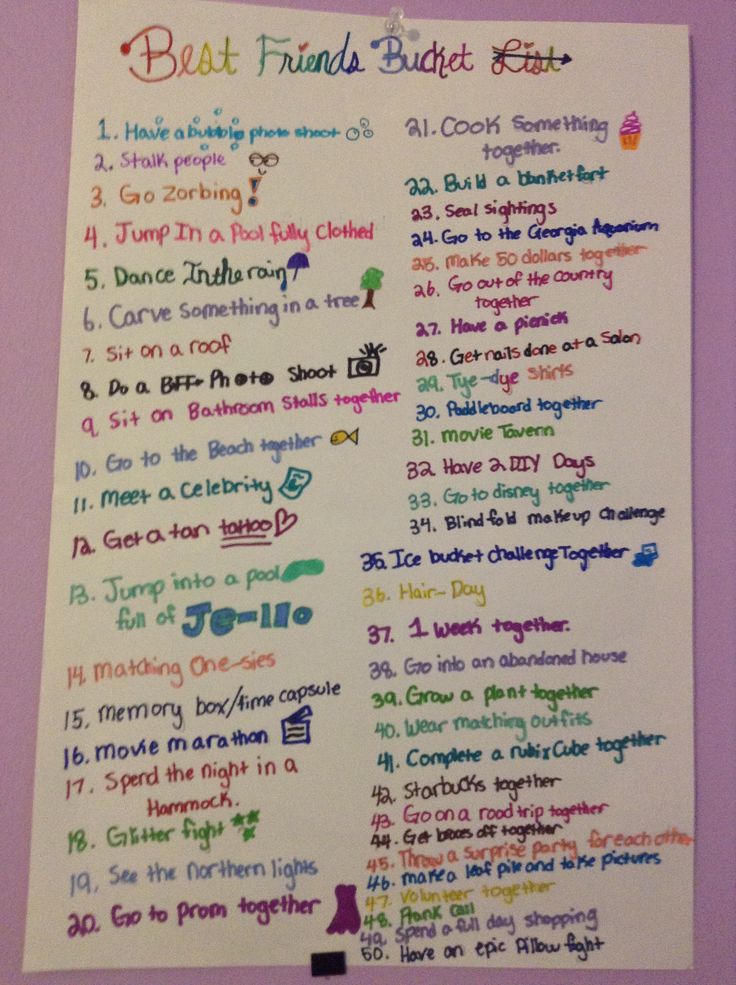 Best Friends Bucket List
1. Have a bubble photo shoot
2. Stalk people
3. Go Zorbing!
4. Jump In a Pool fully Clothed
5. Dance In the rain
6. Carve something in a tree
7. Sit on a roof
8. Do a BFF Photo Shoot
9. Sit on Bathroom Stalls together
10. Go to the Beach together
11. Meet a Celebrity
12. Get a tan tattoo
13. Jump into a pool
full of Je-llo
14. Matching One-sies
15. memory box/time capsule
16. movie marathon
17. Spend the night in a
Hammock.
18. Glitter fight
19. See the northern lights
20. Go to prom together
21. Cook Something
together.
22. Build a blanket fort
23. Seal sightings
24. Go to the Georgia Aquarium
25. Make 50 dollars together
26. Go out of the country
together
27. Have a picnick
28. Get nails done at a Salon
29. Tye-dye shirts
30. Paddleboard together
31. movie Tavern
32. Have 2 DIY Days
33. Go to disney together
34. Blindfold makeup challenge
35. Ice bucket challenge Together
36. Hair-Day
37. 1 Week together.
38. Go into an abandoned house
39. Grow a plant together
40. Wear matching outfits
41. Complete a rubix Cube together
42. Starbucks together
43. Go on a road trip together
44. Get braces off together
45. Throw a surprise party for each other
46. make a leaf pile and take pictures
47. Volunteer together
48. Prank Call
49. Spend a full day shopping
50. Have an epic Pillow fight